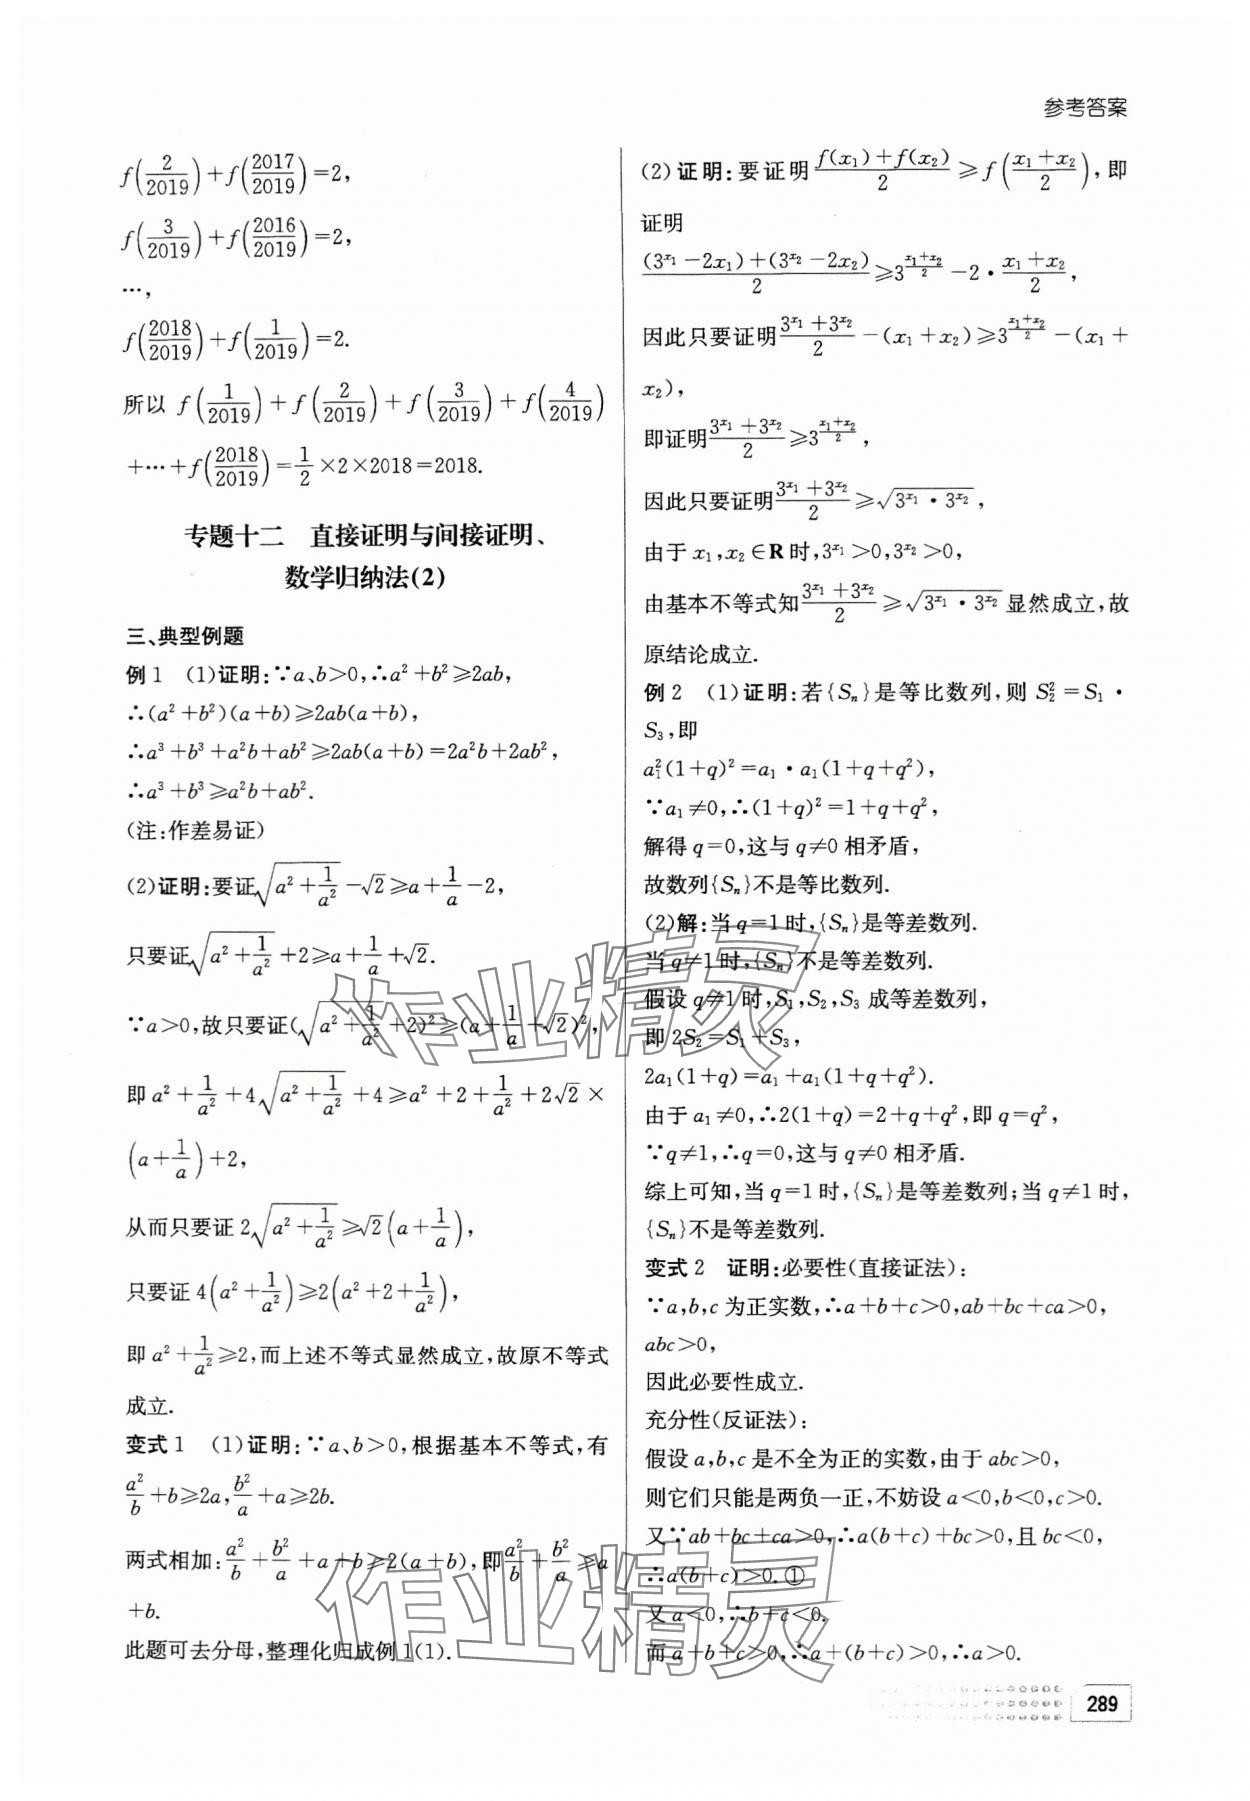 参考答案
f(2/2019)+f(2017/2019)=2,
f(3/2019)+f(2016/2019)=2,
…,
f(2018/2019)+f(1/2019)=2.
所以 f(1/2019)+f(2/2019)+f(3/2019)+f(4/2019)
+…+f(2018/2019)=1/2×2×2018=2018.
专题十二 直接证明与间接证明、
数学归纳法(2)
三、典型例题
例1 (1)证明:∵a、b>0,∴a²+b²≥2ab,
∴(a²+b²)(a+b)≥2ab(a+b),
∴a³+b³+a²b+ab²≥2ab(a+b)=2a²b+2ab²,
∴a³+b³≥a²b+ab².
(注:作差易证)
(2)证明:要证√(a²+1/a²)-√2≥a+1/a-2,
只要证√(a²+1/a²)+2≥a+1/a+√2.
∵a>0,故只要证(√(a²+1/a²)+2)²≥(a+1/a+√2)²,
即 a²+1/a²+4√(a²+1/a²)+4≥a²+2+1/a²+2√2×
(a+1/a)+2,
从而只要证 2√(a²+1/a²)≥√2(a+1/a),
只要证 4(a²+1/a²)≥2(a²+2+1/a²),
即 a²+1/a²≥2,而上述不等式显然成立,故原不等式
成立.
变式1 (1)证明:∵a、b>0,根据基本不等式,有
a²/b+b≥2a,b²/a+a≥2b.
两式相加:a²/b+b²/a+a+b≥2(a+b),即a²/b+b²/a≥a
+b.
此题可去分母,整理化归成例1(1).
(2)证明:要证明(f(x₁)+f(x₂))/2≥f((x₁+x₂)/2),即
证明
((3^x₁-2x₁)+(3^x₂-2x₂))/2≥3^((x₁+x₂)/2)-2·(x₁+x₂)/2,
因此只要证明(3^x₁+3^x₂)/2-(x₁+x₂)≥3^((x₁+x₂)/2)-(x₁+
x₂),
即证明(3^x₁+3^x₂)/2≥3^((x₁+x₂)/2),
因此只要证明(3^x₁+3^x₂)/2≥√(3^x₁·3^x₂),
由于 x₁,x₂∈R时,3^x₁>0,3^x₂>0,
由基本不等式知(3^x₁+3^x₂)/2≥√(3^x₁·3^x₂)显然成立,故
原结论成立.
例2 (1)证明:若{Sₙ}是等比数列,则 S₂²=S₁·
S₃,即
a₁²(1+q)²=a₁·a₁(1+q+q²),
∵a₁≠0,∴(1+q)²=1+q+q²,
解得 q=0,这与 q≠0 相矛盾,
故数列{Sₙ}不是等比数列.
(2)解:当 q=1时,{Sₙ}是等差数列.
当 q≠1时,{Sₙ}不是等差数列.
假设 q≠1时,S₁,S₂,S₃ 成等差数列,
即 2S₂=S₁+S₃,
2a₁(1+q)=a₁+a₁(1+q+q²).
由于 a₁≠0,∴2(1+q)=2+q+q²,即 q=q²,
∵q≠1,∴q=0,这与 q≠0 相矛盾.
综上可知,当 q=1 时,{Sₙ}是等差数列;当 q≠1 时,
{Sₙ}不是等差数列.
变式2 证明:必要性(直接证法):
∵a,b,c 为正实数,∴a+b+c>0,ab+bc+ca>0,
abc>0,
因此必要性成立.
充分性(反证法):
假设 a,b,c 是不全为正的实数,由于 abc>0,
则它们只能是两负一正,不妨设 a<0,b<0,c>0.
又∵ab+bc+ca>0,∴a(b+c)+bc>0,且 bc<0,
∴a(b+c)>0.①
又 a<0,∴b+c<0.
而 a+b+c>0,∴a+(b+c)>0,∴a>0.
289
作业精灵
作业精灵